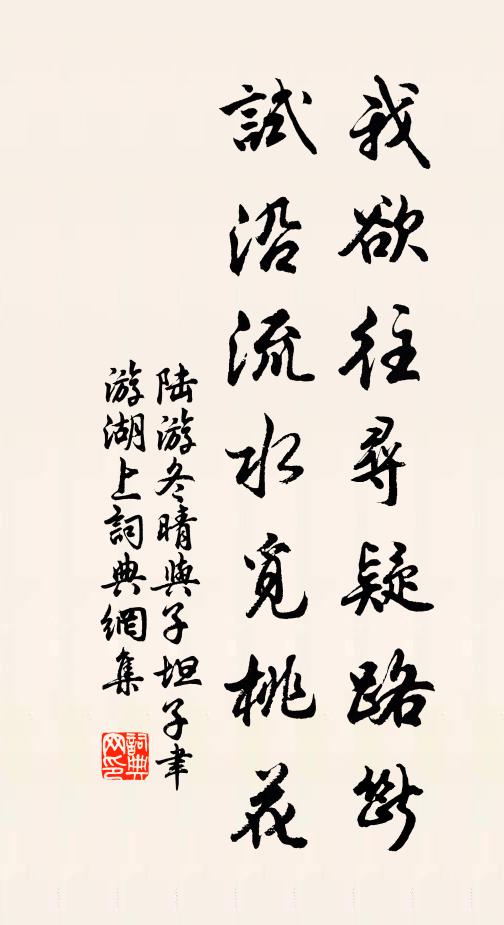 我欲往尋疑路斷
試沿流水覓桃花
陸游冬晴與子坦子聿
游湖上詞典網集
詞典
网印